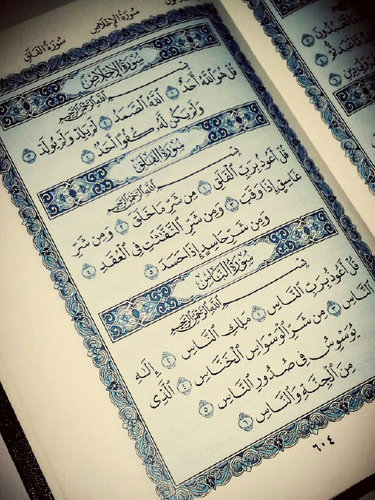 سُورَةُ الإِخْلَاصِ سُورَةُ الفَلَقِ
سُورَةُ الإِخْلَاصِ
بِسْمِ اللَّهِ الرَّحْمَٰنِ الرَّحِيمِ
قُلْ هُوَ ٱللَّهُ أَحَدٌ ١ ٱللَّهُ ٱلصَّمَدُ ٢ لَمْ يَلِدْ وَلَمْ يُولَدْ ٣
وَلَمْ يَكُن لَّهُۥ كُفُوًا أَحَدٌۢ ٤
سُورَةُ الفَلَقِ
بِسْمِ اللَّهِ الرَّحْمَٰنِ الرَّحِيمِ
قُلْ أَعُوذُ بِرَبِّ ٱلْفَلَقِ ١ مِن شَرِّ مَا خَلَقَ ٢ وَمِن شَرِّ
غَاسِقٍ إِذَا وَقَبَ ٣ وَمِن شَرِّ ٱلنَّفَّٰثَٰتِ فِى ٱلْعُقَدِ ٤
وَمِن شَرِّ حَاسِدٍ إِذَا حَسَدَ ٥
سُورَةُ النَّاسِ
بِسْمِ اللَّهِ الرَّحْمَٰنِ الرَّحِيمِ
قُلْ أَعُوذُ بِرَبِّ ٱلنَّاسِ ١ مَلِكِ ٱلنَّاسِ ٢ إِلَٰهِ
ٱلنَّاسِ ٣ مِن شَرِّ ٱلْوَسْوَاسِ ٱلْخَنَّاسِ ٤ ٱلَّذِى
يُوَسْوِسُ فِى صُدُورِ ٱلنَّاسِ ٥
مِنَ ٱلْجِنَّةِ وَٱلنَّاسِ ٦
٦٠٤